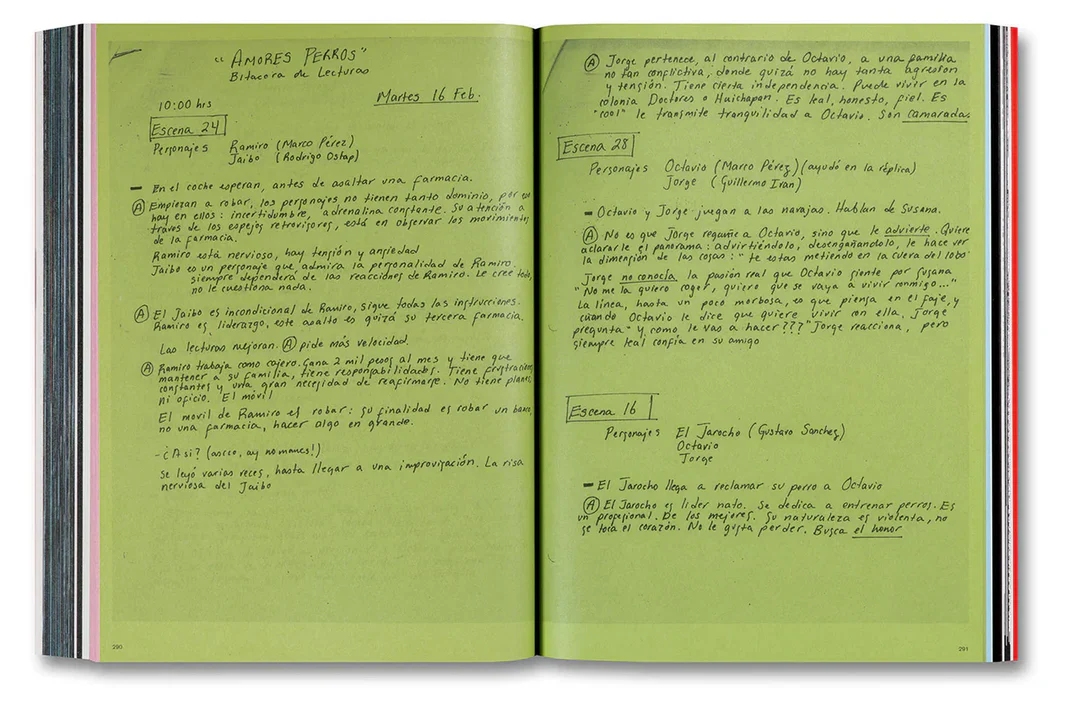 "AMORES PERROS"
Bitacora de Lecturas
Martes 16 Feb.
10:00 hrs
Escena 24
Personajes Ramiro (Marco Pérez)
Jaibo (Rodrigo Ostap)
– En el coche esperan, antes de asaltar una farmacia.
Ⓐ Empiezan a robar, los personajes no tienen tanto dominio, por eso
hay en ellos: incertidumbre, adrenalina constante. Su atención a
través de los espejos retrovisores, está en observar los movimientos
de la farmacia.
Ramiro está nervioso, hay tensión y ansiedad
Jaibo es un personaje que admira la personalidad de Ramiro.
siempre dependerá de las reacciones de Ramiro. Le cree todo,
no le cuestiona nada.
Ⓐ El Jaibo es incondicional de Ramiro, sigue todas las instrucciones.
Ramiro es liderazgo, este asalto es quizá su tercera farmacia.
Las lecturas mejoran. Ⓐ pide más velocidad.
Ⓐ Ramiro trabaja como cajero. Gana 2 mil pesos al mes y tiene que
mantener a su familia, tiene responsabilidades. Tiene frustraciones
constantes y una gran necesidad de reafirmarse. No tiene planes,
ni oficio. El móvil
El movil de Ramiro es robar: su finalidad es robar un banco,
no una farmacia, hacer algo en grande.
- ¿Asi? (ascco, ay no manes!)
Se leyó varias veces, hasta llegar a una improvisación. La risa
nerviosa del Jaibo
290
Ⓐ Jorge pertenece, al contrario de Octavio, a una familia
no tan conflictiva, donde quizá no hay tanta agresion
y tensión. Tiene cierta independencia. Puede vivir en la
colonia Doctores o Huichapan. Es leal, honesto, fiel. Es
"cool" le transmite tranquilidad a Octavio. Son camaradas
Escena 28
Personajes Octavio (Marco Pérez) (ayudó en la réplica)
Jorge (Guillermo Ivan)
– Octavio y Jorge juegan a las navajas. Hablan de Susana.
Ⓐ No es que Jorge regañe a Octavio, sino que le advierte. Quiere
aclararle el panorama: advirtiéndolo, desengañandolo, le hace ver
la dimensión de las cosas: "te estas metiendo en la cueva del lobo"
Jorge no conocía la pasión real que Octavio siente por Susana
"No me la quiero coger, quiero que se vaya a vivir conmigo..."
La línea, hasta un poco morbosa, es que piensa en el faje, y
cuando Octavio le dice que quiere vivir con ella, Jorge
pregunta "y como le vas a hacer???" Jorge reacciona, pero
siempre leal confía en su amigo
Escena 16
Personajes El Jarocho (Gustavo Sanchez)
Octavio
Jorge
– El Jarocho llega a reclamar su perro a Octavio
Ⓐ El Jarocho es lider nato. Se dedica a entrenar perros. Es
un profesional. De los mejores. Su naturaleza es violenta, no
se toca el corazón. No le gusta perder. Busca el honor
291